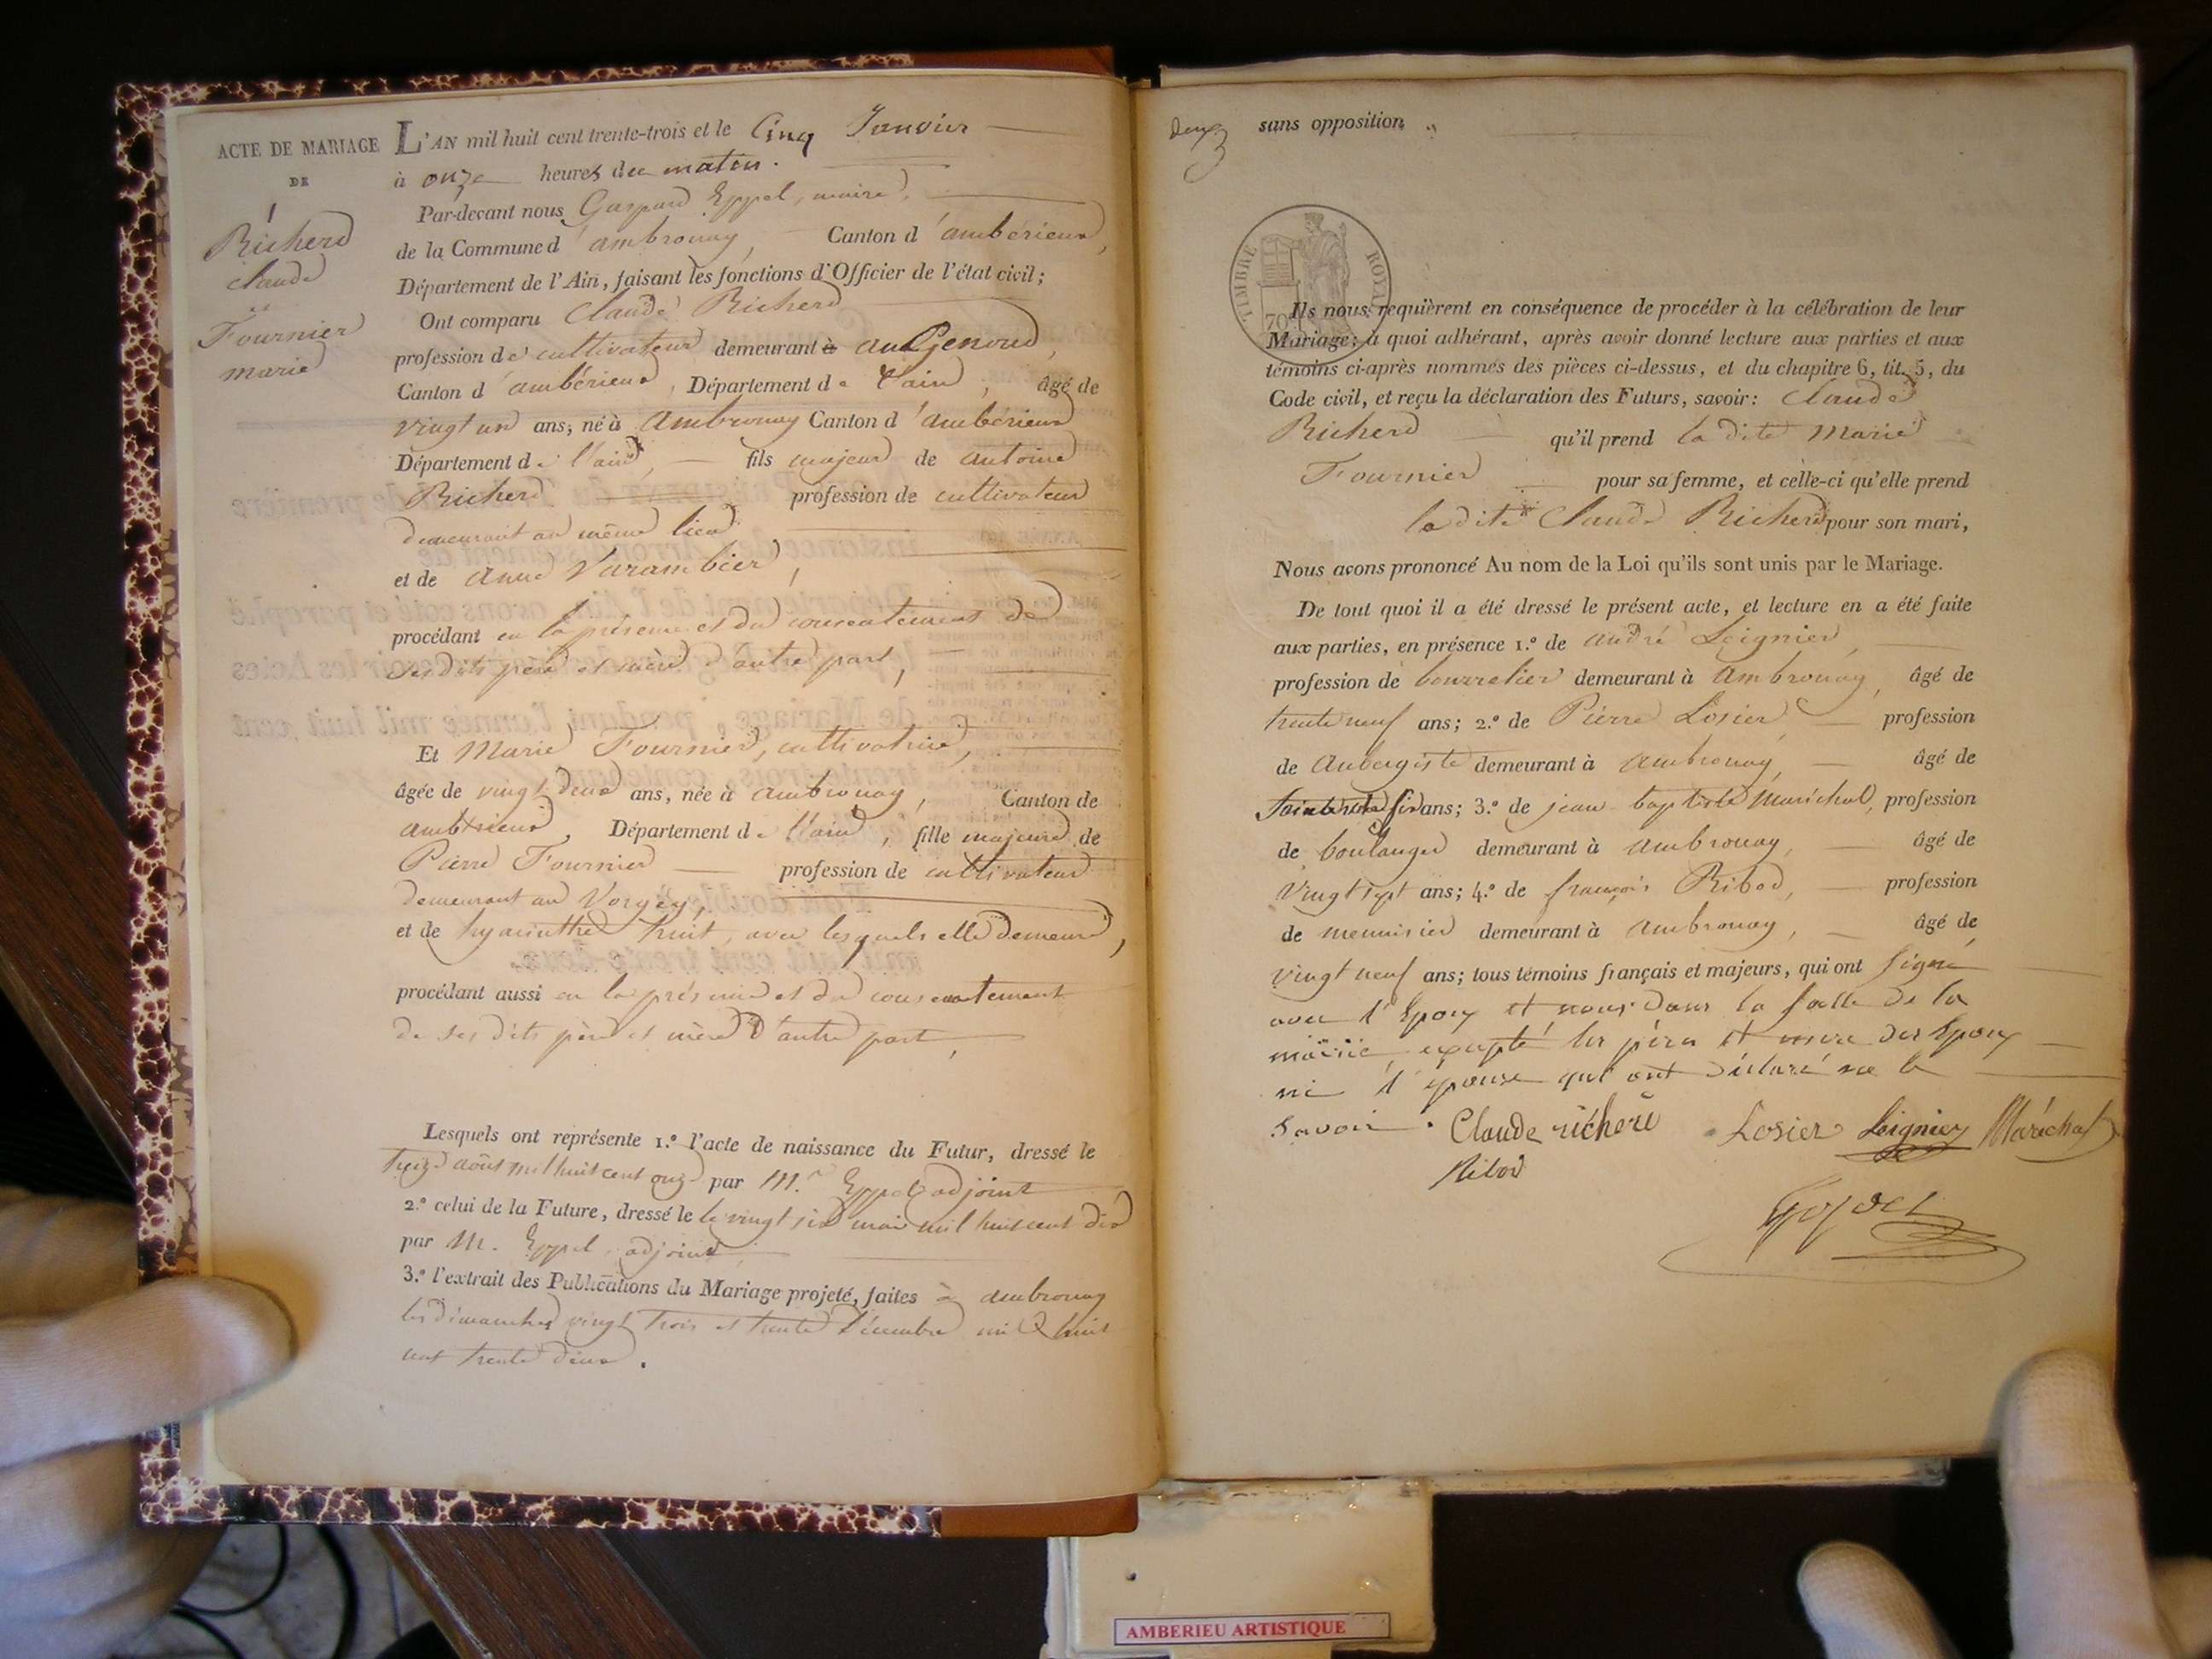 ACTE DE MARIAGE
DE
1
Richerd
Claude
et
Fournier
marie
L'AN mil huit cent trente-trois et le Cinq Janvier
à onze heures du matin.
Par-devant nous Gaspard Eppel, maire,
de la Commune d'ambronay, Canton d'ambérieux,
Département de l'Ain, faisant les fonctions d'Officier de l'état civil;
Ont comparu Claude Richerd
profession de cultivateur demeurant à au Genoud,
Canton d'ambérieux, Département de l'ain, âgé de
vingt un ans, né à Ambronay Canton d'ambérieux
Département de l'ain, fils majeur de antoine
Richerd profession de cultivateur
demeurant au même lieu
et de anne Varambier,
procédant en la présence et du consentement de
ses dits père et mère d'autre part,
Et Marie Fournier, cultivatrice,
âgée de vingt deux ans, née à ambronay, Canton de
ambérieux, Département de l'ain, fille majeure de
Pierre Fournier profession de cultivateur
demeurant au Vorgey,
et de hyacinthe, avec lesquels elle demeure,
procédant aussi en la présence et du consentement
de ses dits père et mère d'autre part,
Lesquels ont représenté 1.º l'acte de naissance du Futur, dressé le
treize août mil huit cent onze par M.r Eppel adjoint
2.º celui de la Future, dressé le le vingt six mai mil huit cent dix
par M. Eppel, adjoint,
3.º l'extrait des Publications du Mariage projeté, faites à ambronay
les dimanches vingt trois et trente décembre mil huit
cent trente deux.
deux
sans opposition
TIMBRE ROYAL
70
Ils nous requièrent en conséquence de procéder à la célébration de leur
Mariage; à quoi adhérant, après avoir donné lecture aux parties et aux
témoins ci-après nommés des pièces ci-dessus, et du chapitre 6, tit. 5, du
Code civil, et reçu la déclaration des Futurs, savoir: Claude
Richerd qu'il prend la dite Marie
Fournier pour sa femme, et celle-ci qu'elle prend
le dit Claude Richerd pour son mari,
Nous avons prononcé Au nom de la Loi qu'ils sont unis par le Mariage.
De tout quoi il a été dressé le présent acte, et lecture en a été faite
aux parties, en présence 1.º de andré Loignier,
profession de bourrelier demeurant à Ambronay, âgé de
trente neuf ans; 2.º de Pierre Losier, profession
de Aubergiste demeurant à ambronay, âgé de
six ans; 3.º de jean baptiste Maréchal, profession
de boulanger demeurant à ambronay, âgé de
vingt sept ans; 4.º de françois Ribod, profession
de menuisier demeurant à ambronay, âgé de
vingt neuf ans; tous témoins français et majeurs, qui ont signé
avec l'Epoux et nous dans la salle de la
mairie, excepté les père et mère des Epoux
ni l'épouse qui ont déclaré ne le
savoir. Claude richerd Losier Loignier Maréchal
Ribod